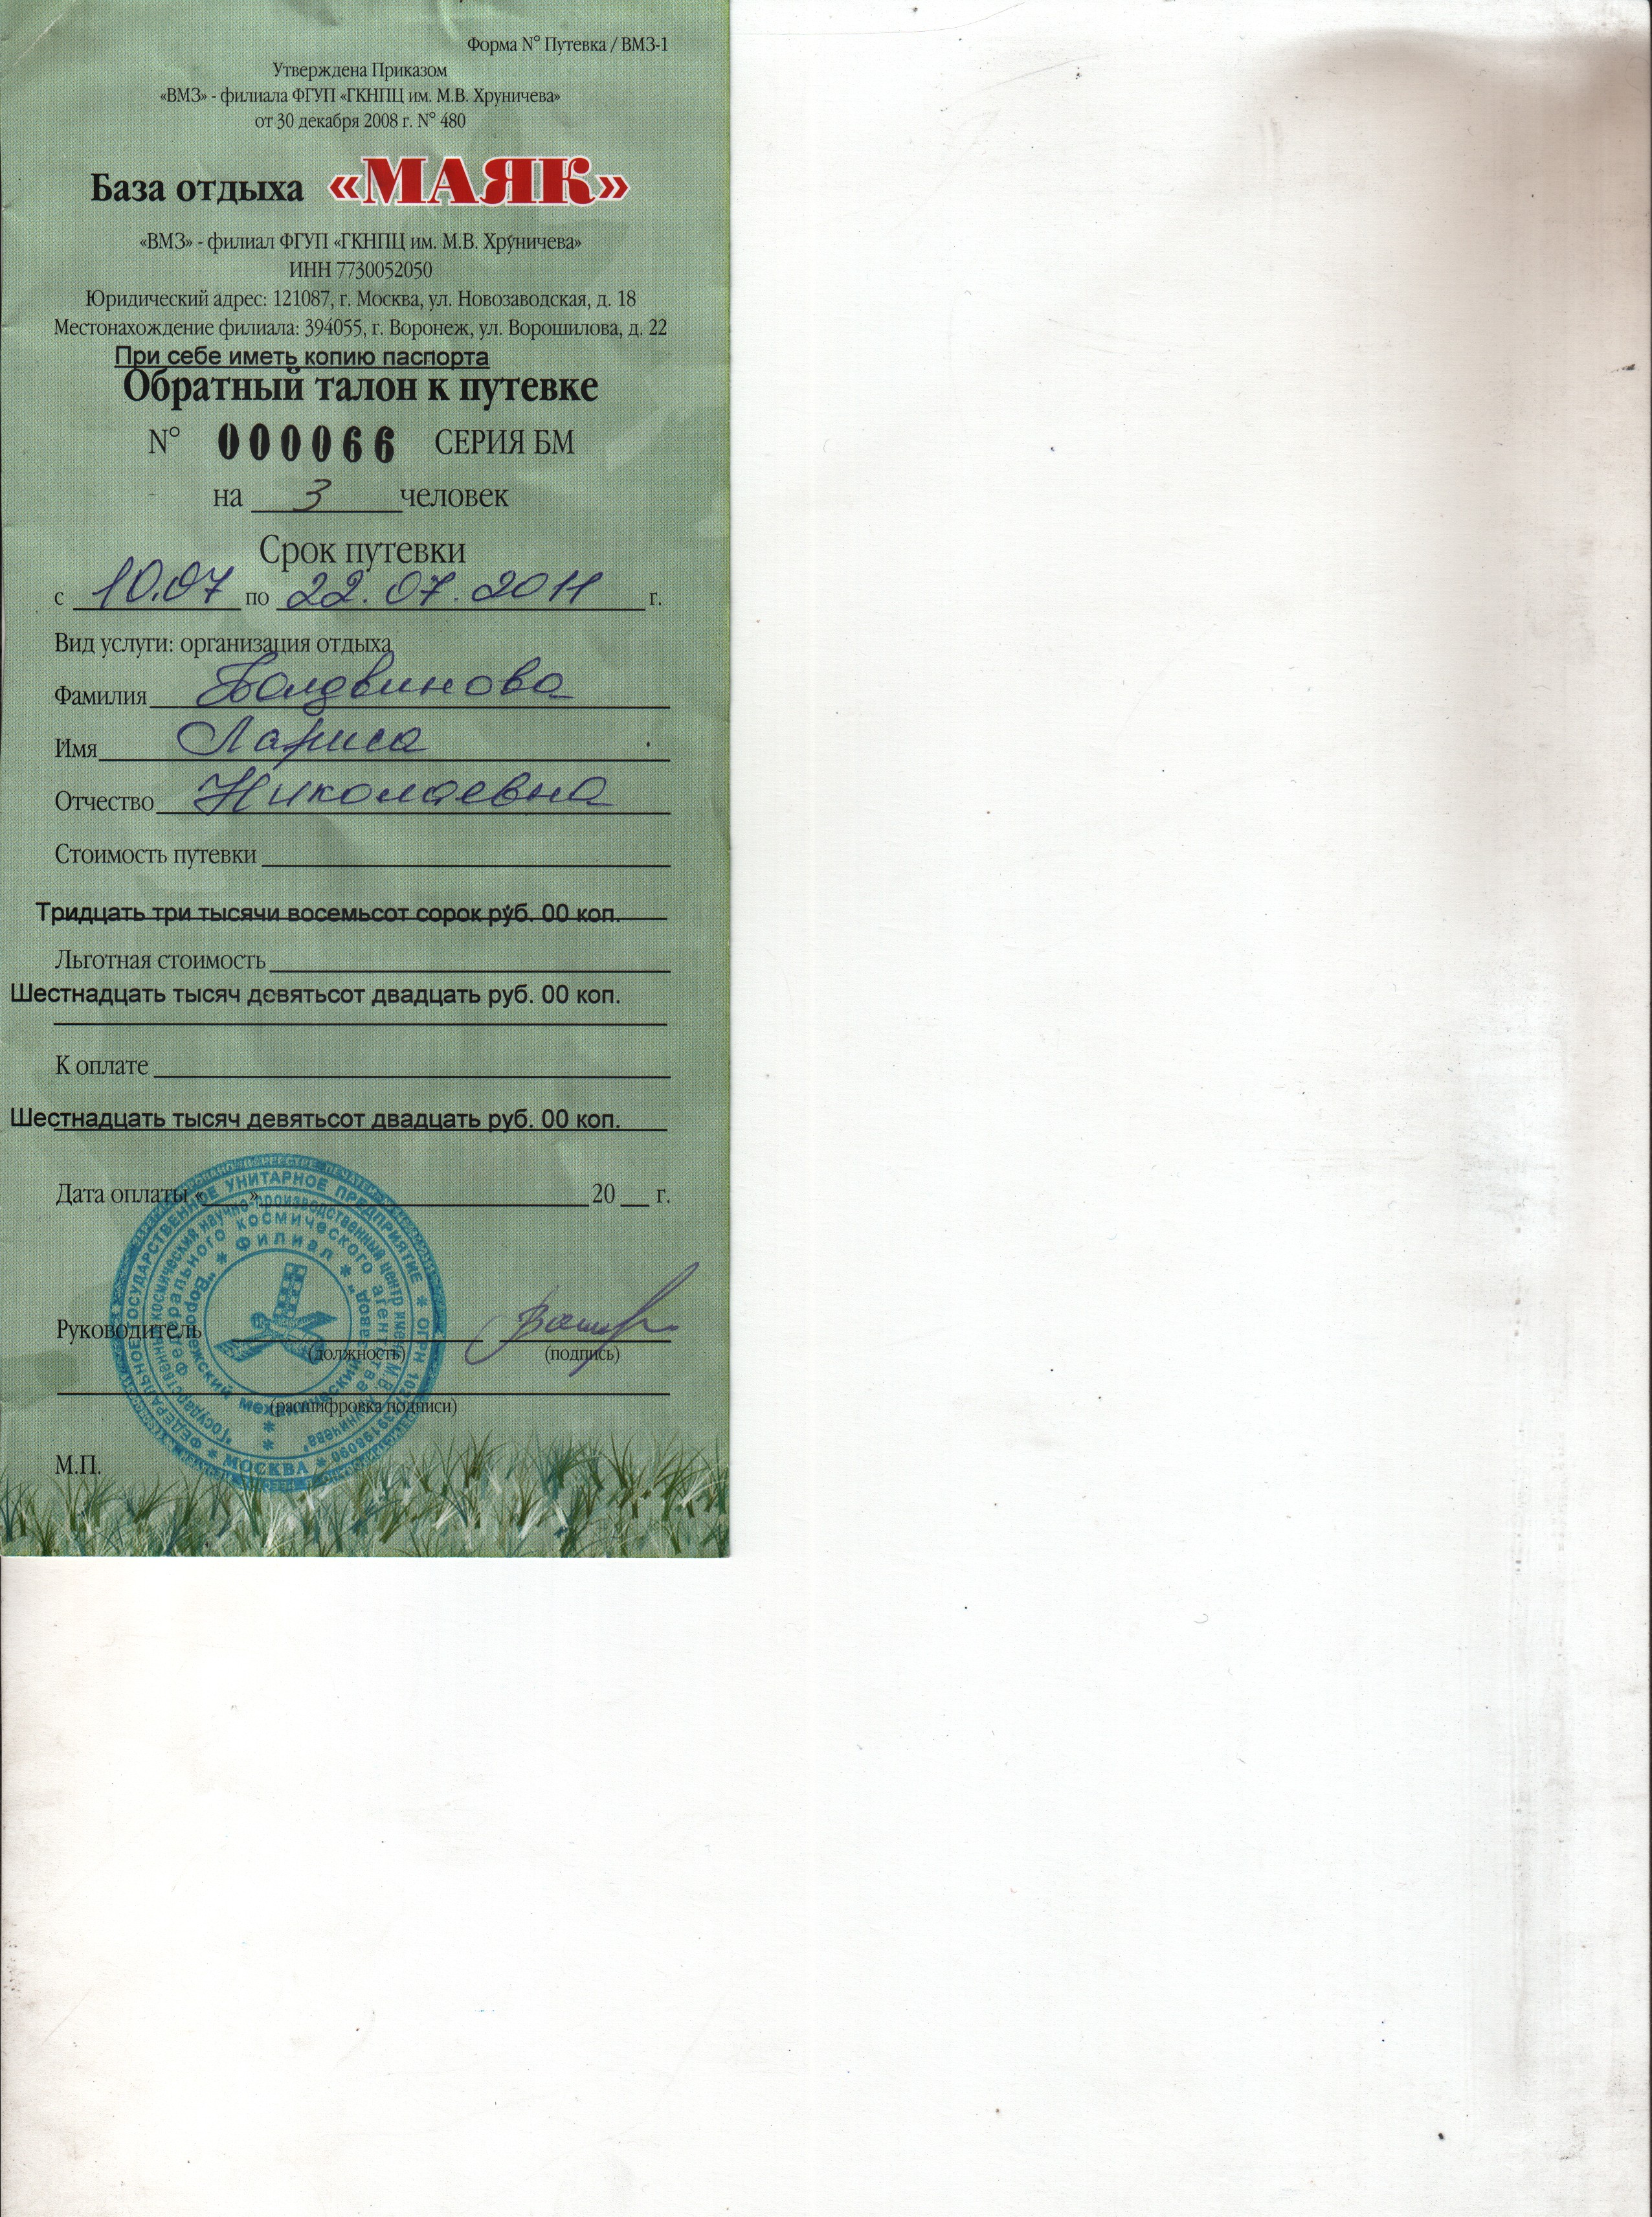 Форма N° Путевка / ВМЗ-1
Утверждена Приказом
«ВМЗ» - филиала ФГУП «ГКНПЦ им. М.В. Хруничева»
от 30 декабря 2008 г. N° 480
База отдыха «МАЯК»
«ВМЗ» - филиал ФГУП «ГКНПЦ им. М.В. Хруничева»
ИНН 7730052050
Юридический адрес: 121087, г. Москва, ул. Новозаводская, д. 18
Местонахождение филиала: 394055, г. Воронеж, ул. Ворошилова, д. 22
При себе иметь копию паспорта
Обратный талон к путевке
N° 000066 СЕРИЯ БМ
на 3 человек
Срок путевки
с 10.07 по 22.07.2011 г.
Вид услуги: организация отдыха
Фамилия Болдвинова
Имя Лариса
Отчество Николаевна
Стоимость путевки
Тридцать три тысячи восемьсот сорок руб. 00 коп.
Льготная стоимость
Шестнадцать тысяч девятьсот двадцать руб. 00 коп.
К оплате
Шестнадцать тысяч девятьсот двадцать руб. 00 коп.
Дата оплаты « » 20 г.
Руководитель
(должность) (подпись)
(расшифровка подписи)
М.П.
ФЕДЕРАЛЬНОЕ ГОСУДАРСТВЕННОЕ УНИТАРНОЕ ПРЕДПРИЯТИЕ * ОГРН
* МОСКВА *
"Государственный космический научно-производственный центр имени М.В. Хруничева"
Федерального космического агентства
* Филиал * "Воронежский механический завод"